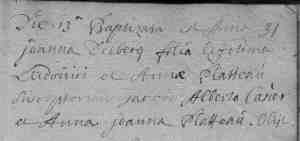 Die 13ª Baptizata est Anna 31
joanna Deiberg filia legitima
Ludovici et Annæ Platteau
susceptorum jacobo Alberto Casier
et Anna joanna Platteau.